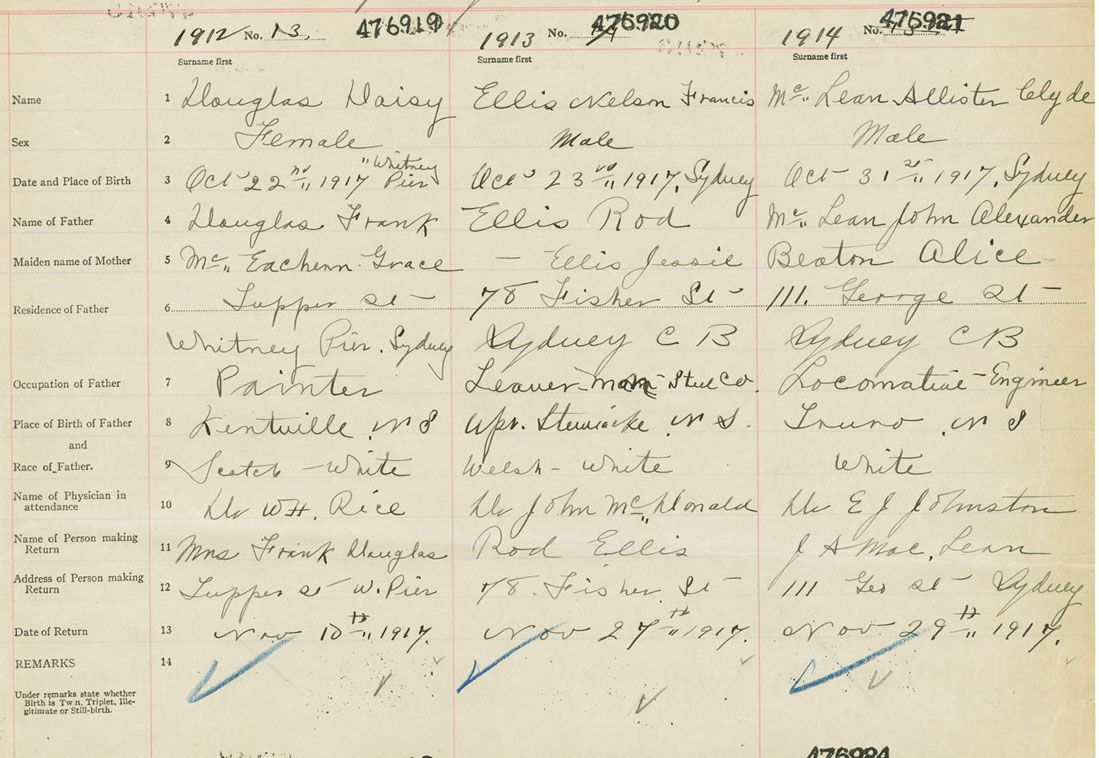 1912 No. 13. 476919 1913 No. 476920 1914 No. 476921
Surname first Surname first Surname first
Name 1 Douglas Daisy Ellis Nelson Francis Mc Lean Allister Clyde
Sex 2 Female Male Male
Date and Place of Birth 3 Oct 22nd 1917 "Whitney Pier Oct 23 1917, Sydney Oct 31st 1917, Sydney
Name of Father 4 Douglas Frank Ellis Rod Mc Lean John Alexander
Maiden name of Mother 5 Mc Eachern Grace – Ellis Jessie Beaton Alice
Residence of Father 6 Tupper St 78 Fisher St 111. George St
Whitney Pier. Sydney Sydney C B Sydney C B
Occupation of Father 7 Painter Steel Co. Locomative Engineer
Place of Birth of Father 8 Kentville, N S Upr. Stewiacke, N S. Truro, N S
and
Race of Father. 9 Scotch – White Welsh – White White
Name of Physician in
attendance 10 Dr W H. Rice Dr John Mc Donald Dr E J Johnston
Name of Person making
Return 11 Mrs Frank Douglas Rod Ellis J A Mac, Lean
Address of Person making
Return 12 Tupper St W. Pier 78. Fisher St 111 Geo St Sydney
Date of Return 13 Nov 10th 1917. Nov 27th 1917. Nov 29th 1917.
REMARKS 14
Under remarks state whether
Birth is Twin, Triplet, Ille-
gitimate or Still-birth.
476984